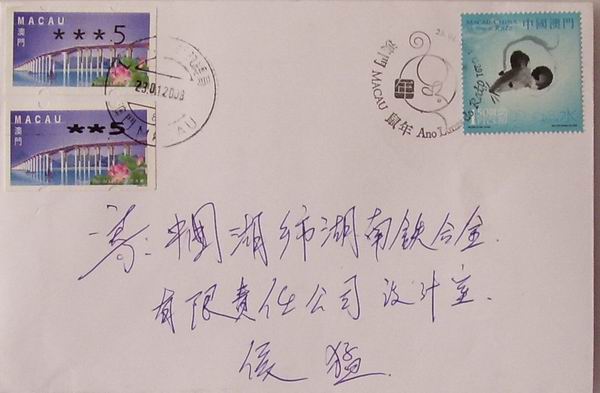 MACAU
澳門
***5
MACAU
澳門
**5
23.01.2008
澳門 MACAU
鼠年 Ano Lunar do Rato
MACAU, CHINA
中國澳門
寄:中國湖南湖南铁合金
有限责任公司设计室
侯 猛